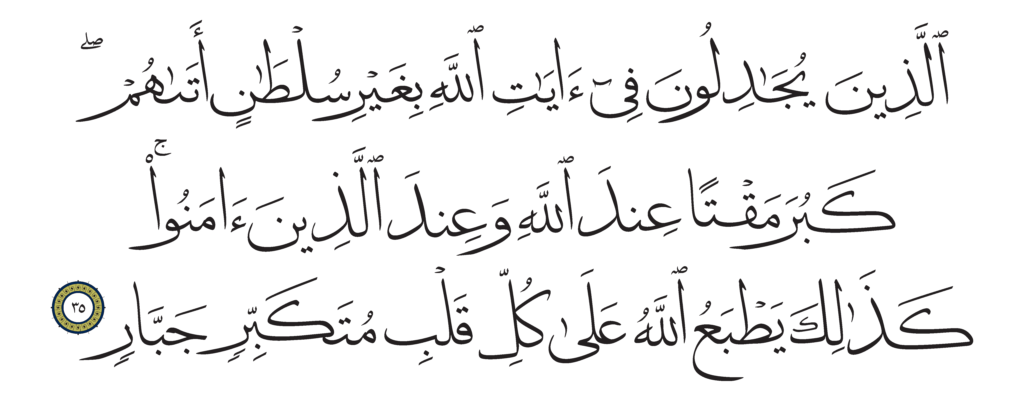 ٱلَّذِينَ يُجَـٰدِلُونَ فِىٓ ءَايَـٰتِ ٱللَّهِ بِغَيْرِ سُلْطَـٰنٍ أَتَىٰهُمْ ۖ
كَبُرَ مَقْتًا عِندَ ٱللَّهِ وَعِندَ ٱلَّذِينَ ءَامَنُوا۟ ۚ
كَذَٰلِكَ يَطْبَعُ ٱللَّهُ عَلَىٰ كُلِّ قَلْبِ مُتَكَبِّرٍ جَبَّارٍ ٣٥